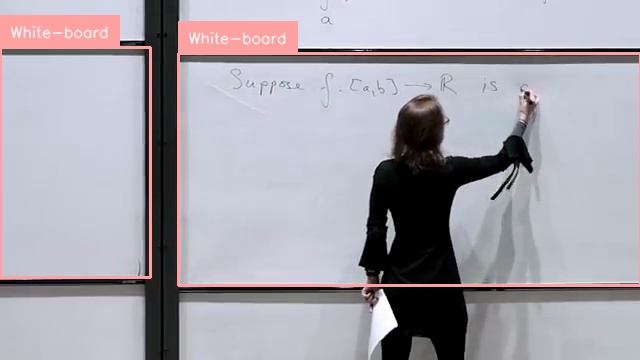 a
White-board
White-board
Suppose f: [a,b] → ℝ is